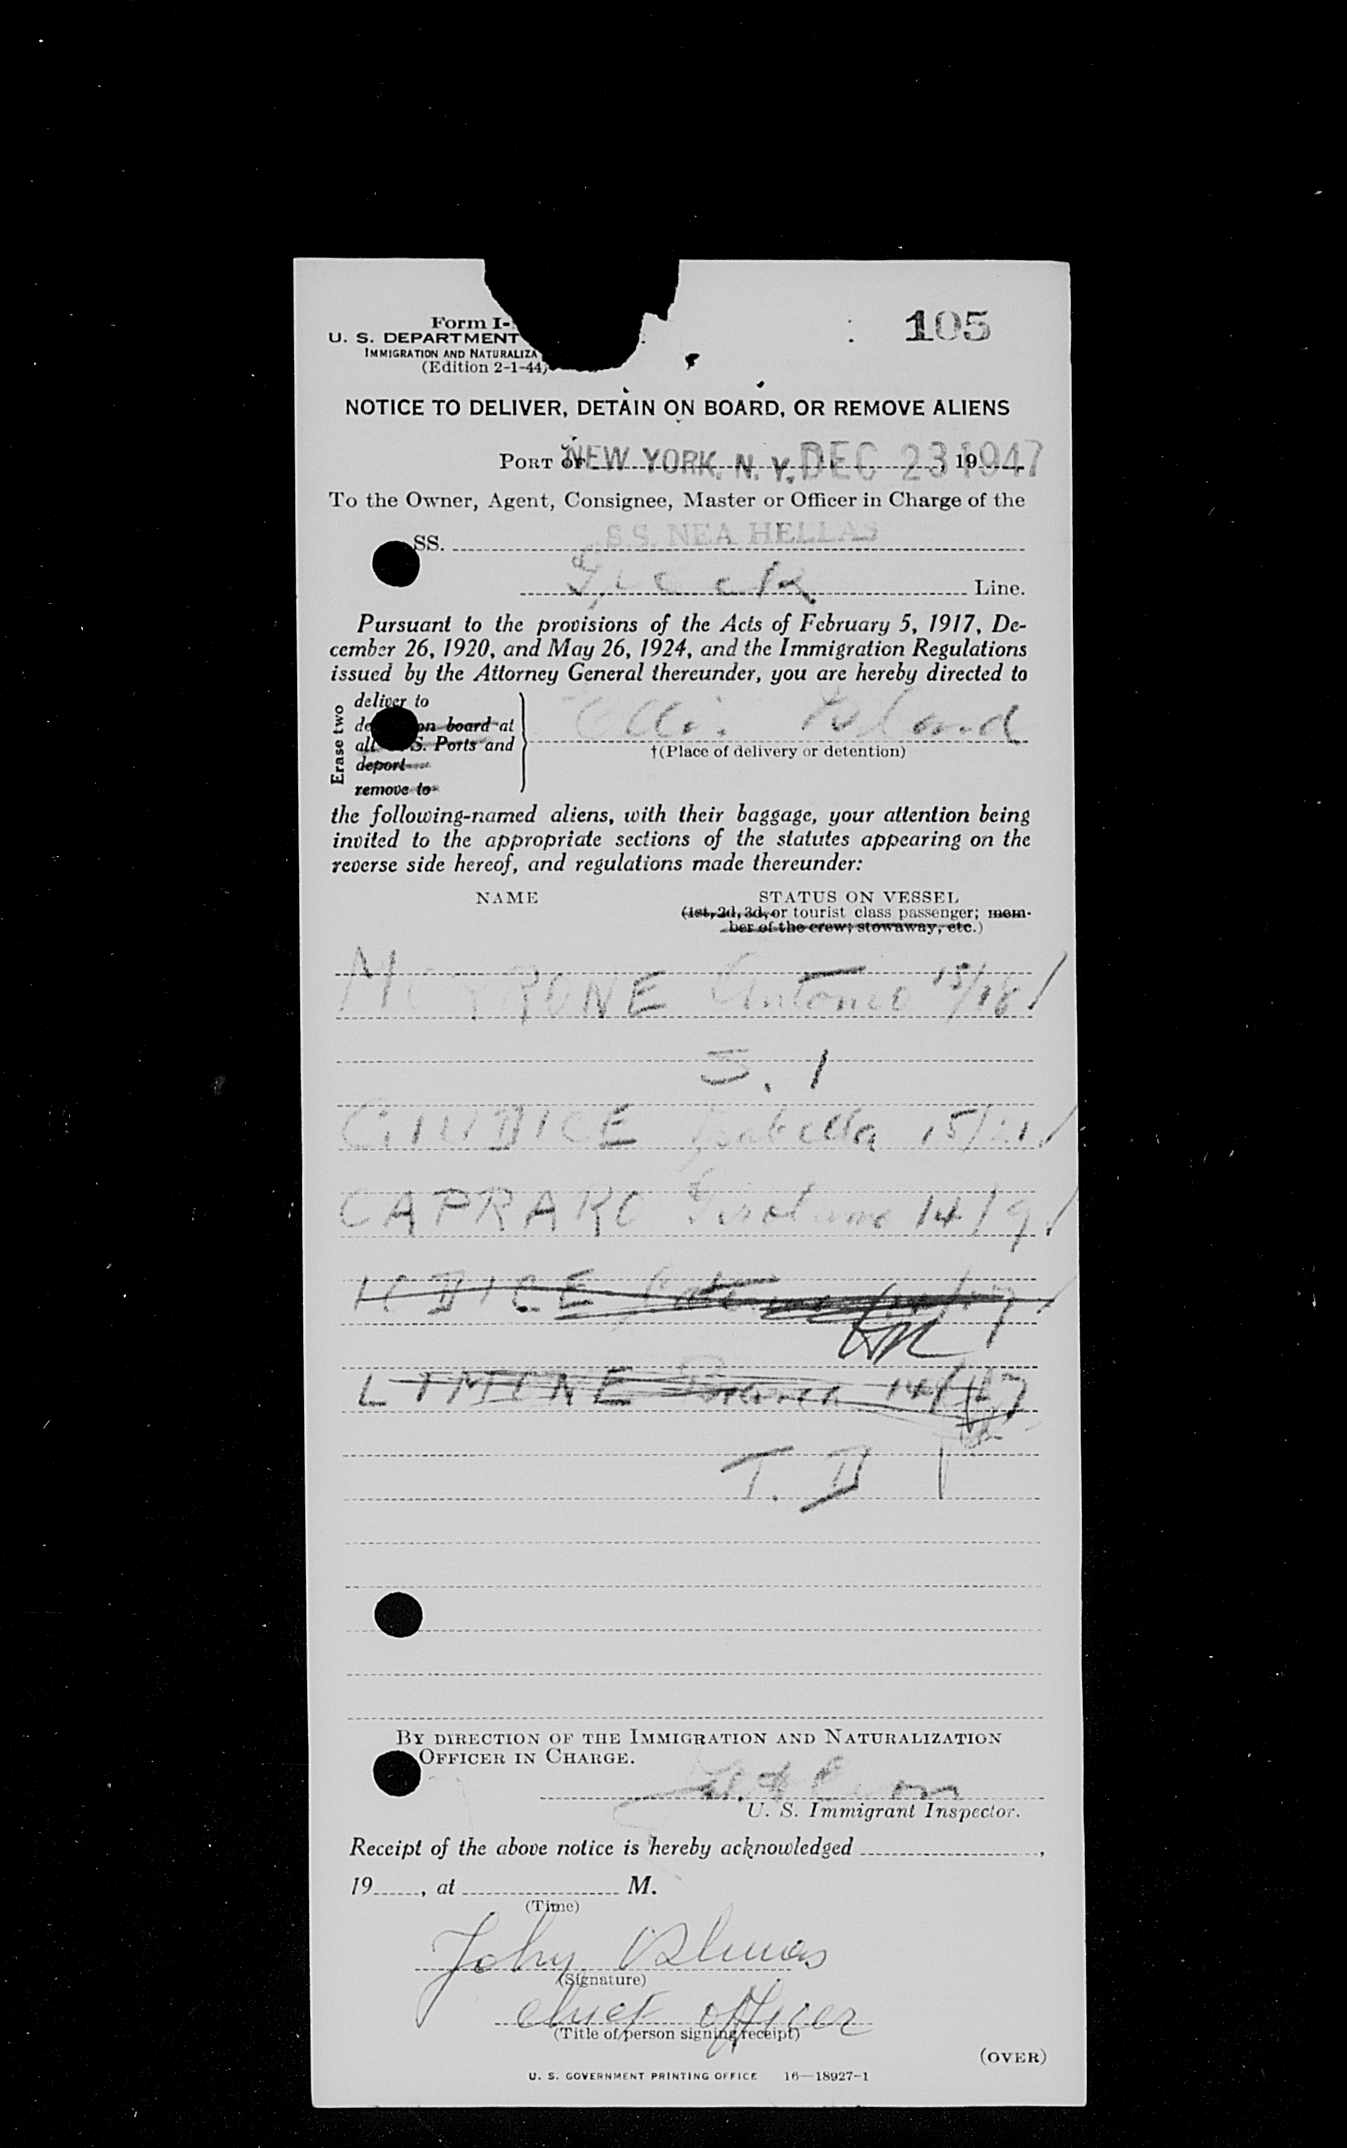 Form I-
105
U. S. DEPARTMENT
IMMIGRATION AND NATURALIZA
(Edition 2-1-44)
NOTICE TO DELIVER, DETAIN ON BOARD, OR REMOVE ALIENS
PORT OF NEW YORK, N. Y. DEC 23 1947, 19
To the Owner, Agent, Consignee, Master or Officer in Charge of the
SS. S.S. NEA HELLAS
Greek Line.
Pursuant to the provisions of the Acts of February 5, 1917, De-
cember 26, 1920, and May 26, 1924, and the Immigration Regulations
issued by the Attorney General thereunder, you are hereby directed to
Erase two
deliver to
de on board at
all S. Ports and
deport
remove to
Ellis Island
†(Place of delivery or detention)
the following-named aliens, with their baggage, your attention being
invited to the appropriate sections of the statutes appearing on the
reverse side hereof, and regulations made thereunder:
NAME STATUS ON VESSEL
(1st, 2d, 3d, or tourist class passenger; mem-
ber of the crew; stowaway, etc.)
Antonio 15/18 /
S. 1
GIUDICE Isabella 15/21 /
CAPRARO Girolamo 14/9 /
T. D
BY DIRECTION OF THE IMMIGRATION AND NATURALIZATION
OFFICER IN CHARGE.
U. S. Immigrant Inspector.
Receipt of the above notice is hereby acknowledged ,
19 , at M.
(Time)
John
(Signature)
chief officer
(Title of person signing receipt)
(OVER)
U. S. GOVERNMENT PRINTING OFFICE 16—18927-1